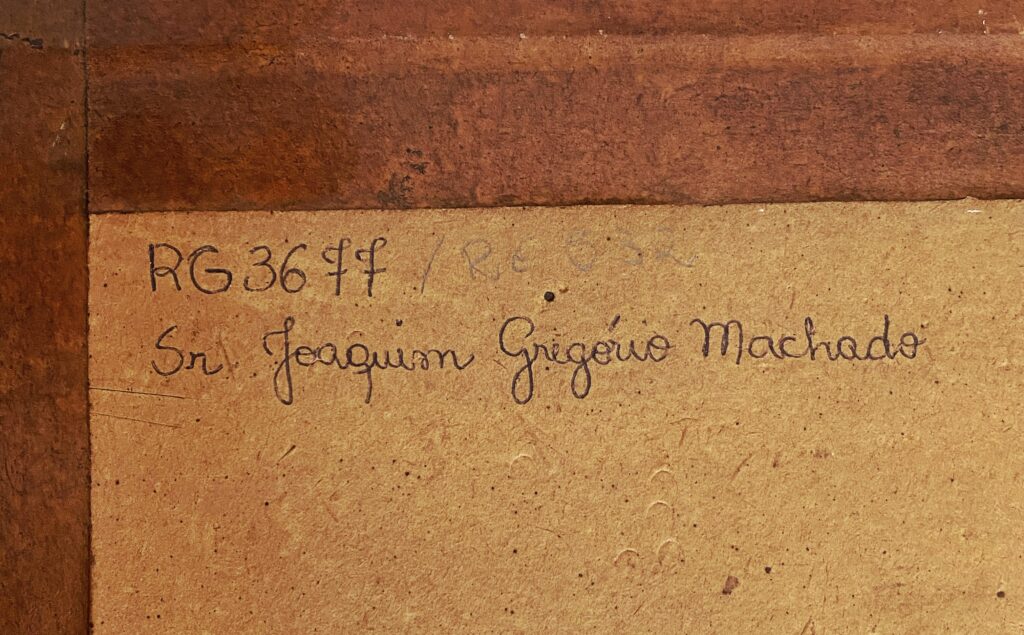 RG 3677 /
Sr. Joaquim Grigório Machado